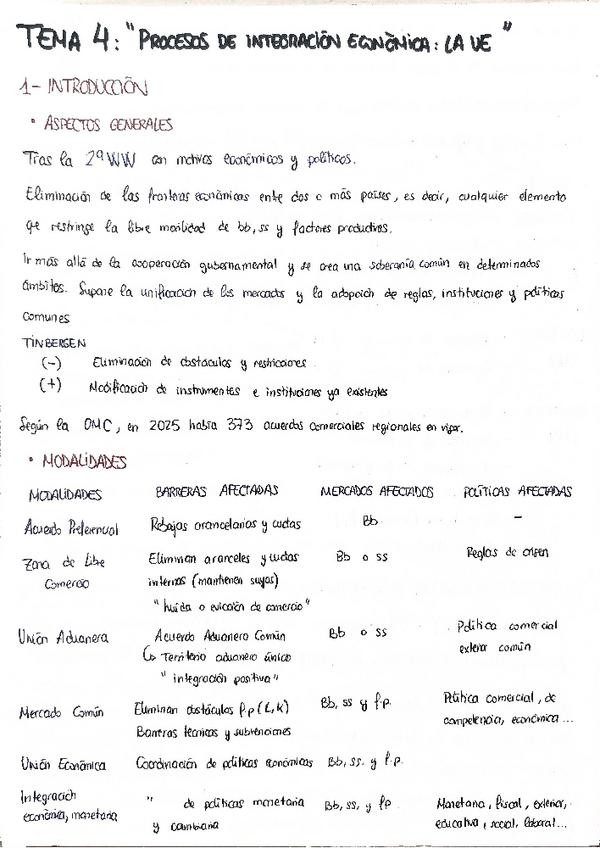 TEMA 4: "PROCESOS DE INTEGRACIÓN ECONÓMICA: LA UE"
1- INTRODUCCIÓN
• ASPECTOS GENERALES
Tras la 2ª WW con motivos económicos y políticos.
Eliminación de las fronteras económicas entre dos o más países, es decir, cualquier elemento
que restringe la libre movilidad de bb, ss y factores productivos.
Ir más allá de la cooperación gubernamental y se crea una soberanía común en determinados
ámbitos. Supone la unificación de los mercados y la adopción de reglas, instituciones y políticas
comunes
TINBERGEN
(-) Eliminación de obstáculos y restricciones
(+) Modificación de instrumentos e instituciones ya existentes
Según la OMC, en 2025 había 373 acuerdos comerciales regionales en vigor.
• MODALIDADES
MODALIDADES BARRERAS AFECTADAS MERCADOS AFECTADOS POLÍTICAS AFECTADAS
Acuerdo Preferencial Rebajas arancelarias y cuotas Bb -
Zona de Libre Eliminan aranceles y cuotas Bb o ss Reglas de origen
Comercio internas (mantienen suyas)
"huida o evicción de comercio"
Unión Aduanera Acuerdo Aduanero Común Bb o ss Política comercial
↳ Territorio aduanero único exterior común
"integración positiva"
Mercado Común Eliminan obstáculos f.p (L, K) Bb, ss y f.p. Política comercial, de
Barreras técnicas y subvenciones competencia, económica...
Unión Económica Coordinación de políticas económicas Bb, ss. y f.p.
Integración " de políticas monetaria Bb, ss, y fp Monetaria, fiscal, exterior,
económica, monetaria y cambiaria educativa, social, laboral...